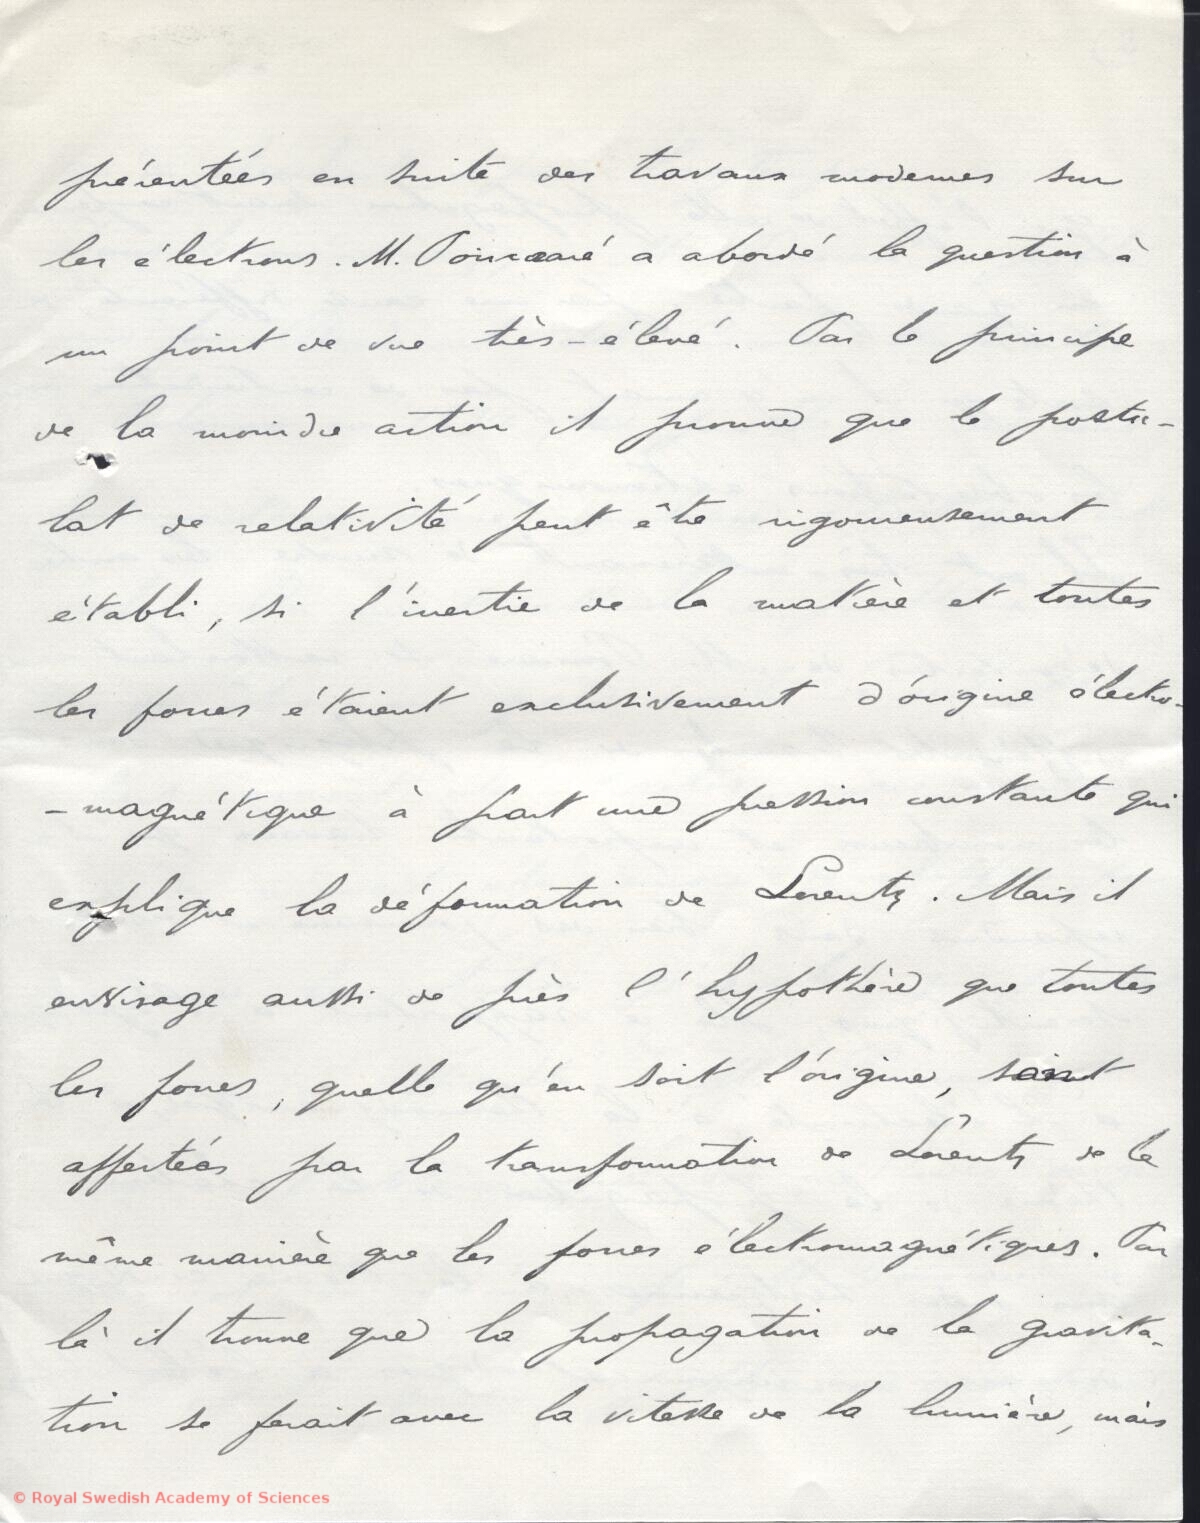 présentées en suite des travaux modernes sur
les électrons. M. Poincaré a abordé la question à
un point de vue très-élevé. Par le principe
de la moindre action il prouve que le postu-
lat de relativité peut être rigoureusement
établi, si l'inertie de la matière et toutes
les forces étaient exclusivement d'origine électro-
-magnétique à part une pression constante qui
explique la déformation de Lorentz. Mais il
envisage aussi de près l'hypothèse que toutes
les forces, quelle qu'en soit l'origine, soient
affectées par la transformation de Lorentz de la
même manière que les forces électromagnétiques. Par
là il trouve que la propagation de la gravita-
tion se ferait avec la vitesse de la lumière, mais
© Royal Swedish Academy of Sciences